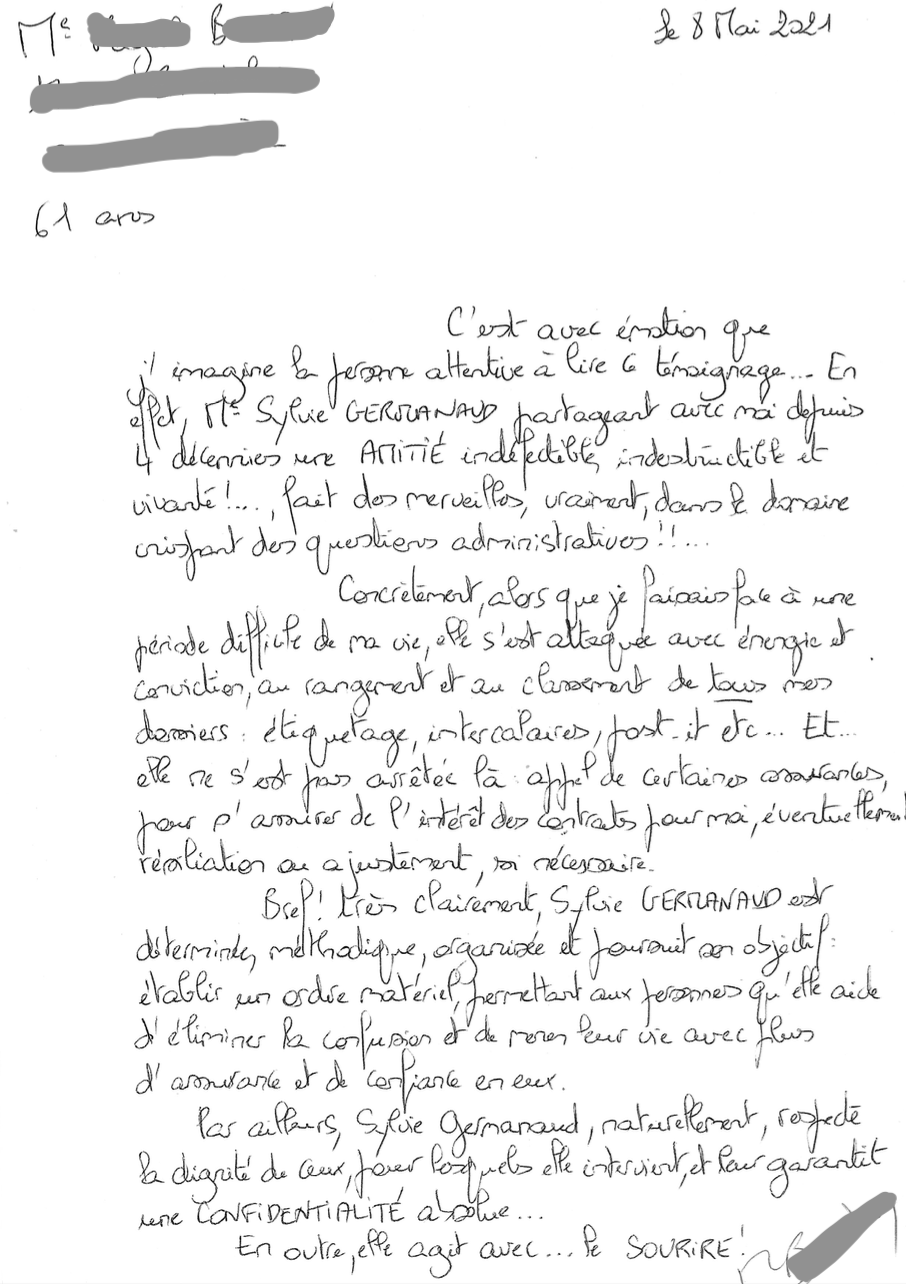 Me B
le 8 Mai 2021
61 ans
C'est avec émotion que
j'imagine la personne attentive à lire ce témoignage... En
effet, Me Sylvie GERMANAUD partageant avec moi depuis
4 décennies une AMITIÉ indéfectible, indestructible et
vivante !..., fait des merveilles, vraiment, dans le domaine
crispant des questions administratives !!...
Concrètement, alors que je faisais face à une
période difficile de ma vie, elle s'est attaquée avec énergie et
conviction, au rangement et au classement de tous mes
dossiers : étiquetage, intercalaires, post-it etc... Et...
elle ne s'est pas arrêtée là : appel de certaines assurances,
pour s'assurer de l'intérêt des contrats pour moi, éventuellement
résiliation ou ajustement, si nécessaire.
Bref ! très clairement, Sylvie GERMANAUD est
déterminée, méthodique, organisée et poursuit son objectif :
établir un ordre matériel, permettant aux personnes qu'elle aide
d'éliminer la confusion et de mener leur vie avec plus
d'assurance et de confiance en eux.
Par ailleurs, Sylvie Germanaud, naturellement, respecte
la dignité de ceux, pour lesquels elle intervient, et leur garantit
une CONFIDENTIALITÉ absolue...
En outre, elle agit avec... le SOURIRE !